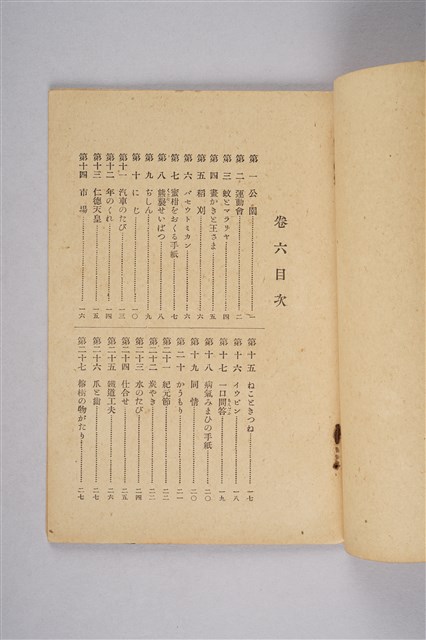 卷六目次
第一 公園 一
第二 運動會 二
第三 蚊とマラリヤ 四
第四 畫かきと王さま 五
第五 稻刈 六
第六 バセウトミカン 六
第七 蜜柑をおくる手紙 七
第八 熊襲せいばつ 八
第九 ぢしん 九
第十 にじ 一〇
第十一 汽車のたび 一三
第十二 年のくれ 一四
第十三 仁德天皇 一五
第十四 市場 一六
第十五 ねこときつね 一七
第十六 イウビン 一八
第十七 一口問答 一九
第十八 病氣みまひの手紙 二〇
第十九 同情 二〇
第二十 かうもり 二一
第二十一 紀元節 二二
第二十二 炭やき 二三
第二十三 水のたび 二四
第二十四 仕合せ 二五
第二十五 鐵道工夫 二六
第二十六 爪と齒 二七
第二十七 榕樹の物がたり 二七